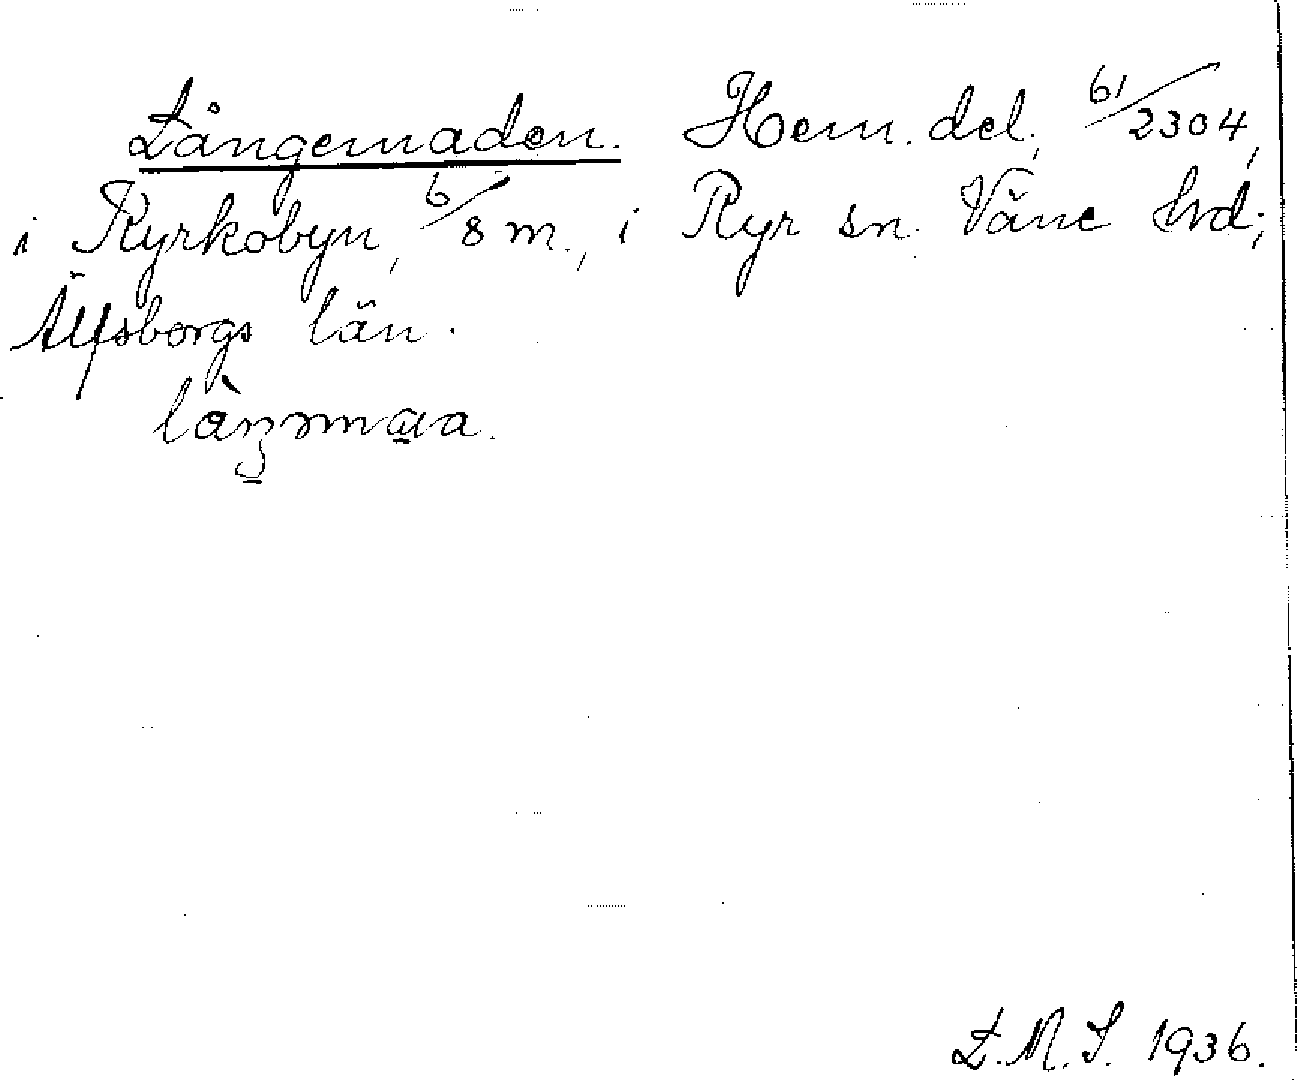 Långemaden. Hem. del, 61/2304,
i Kyrkobyn, 6/8 m., i Ryr sn. Väne hd;
Älfsborgs län.
L.M.S. 1936.